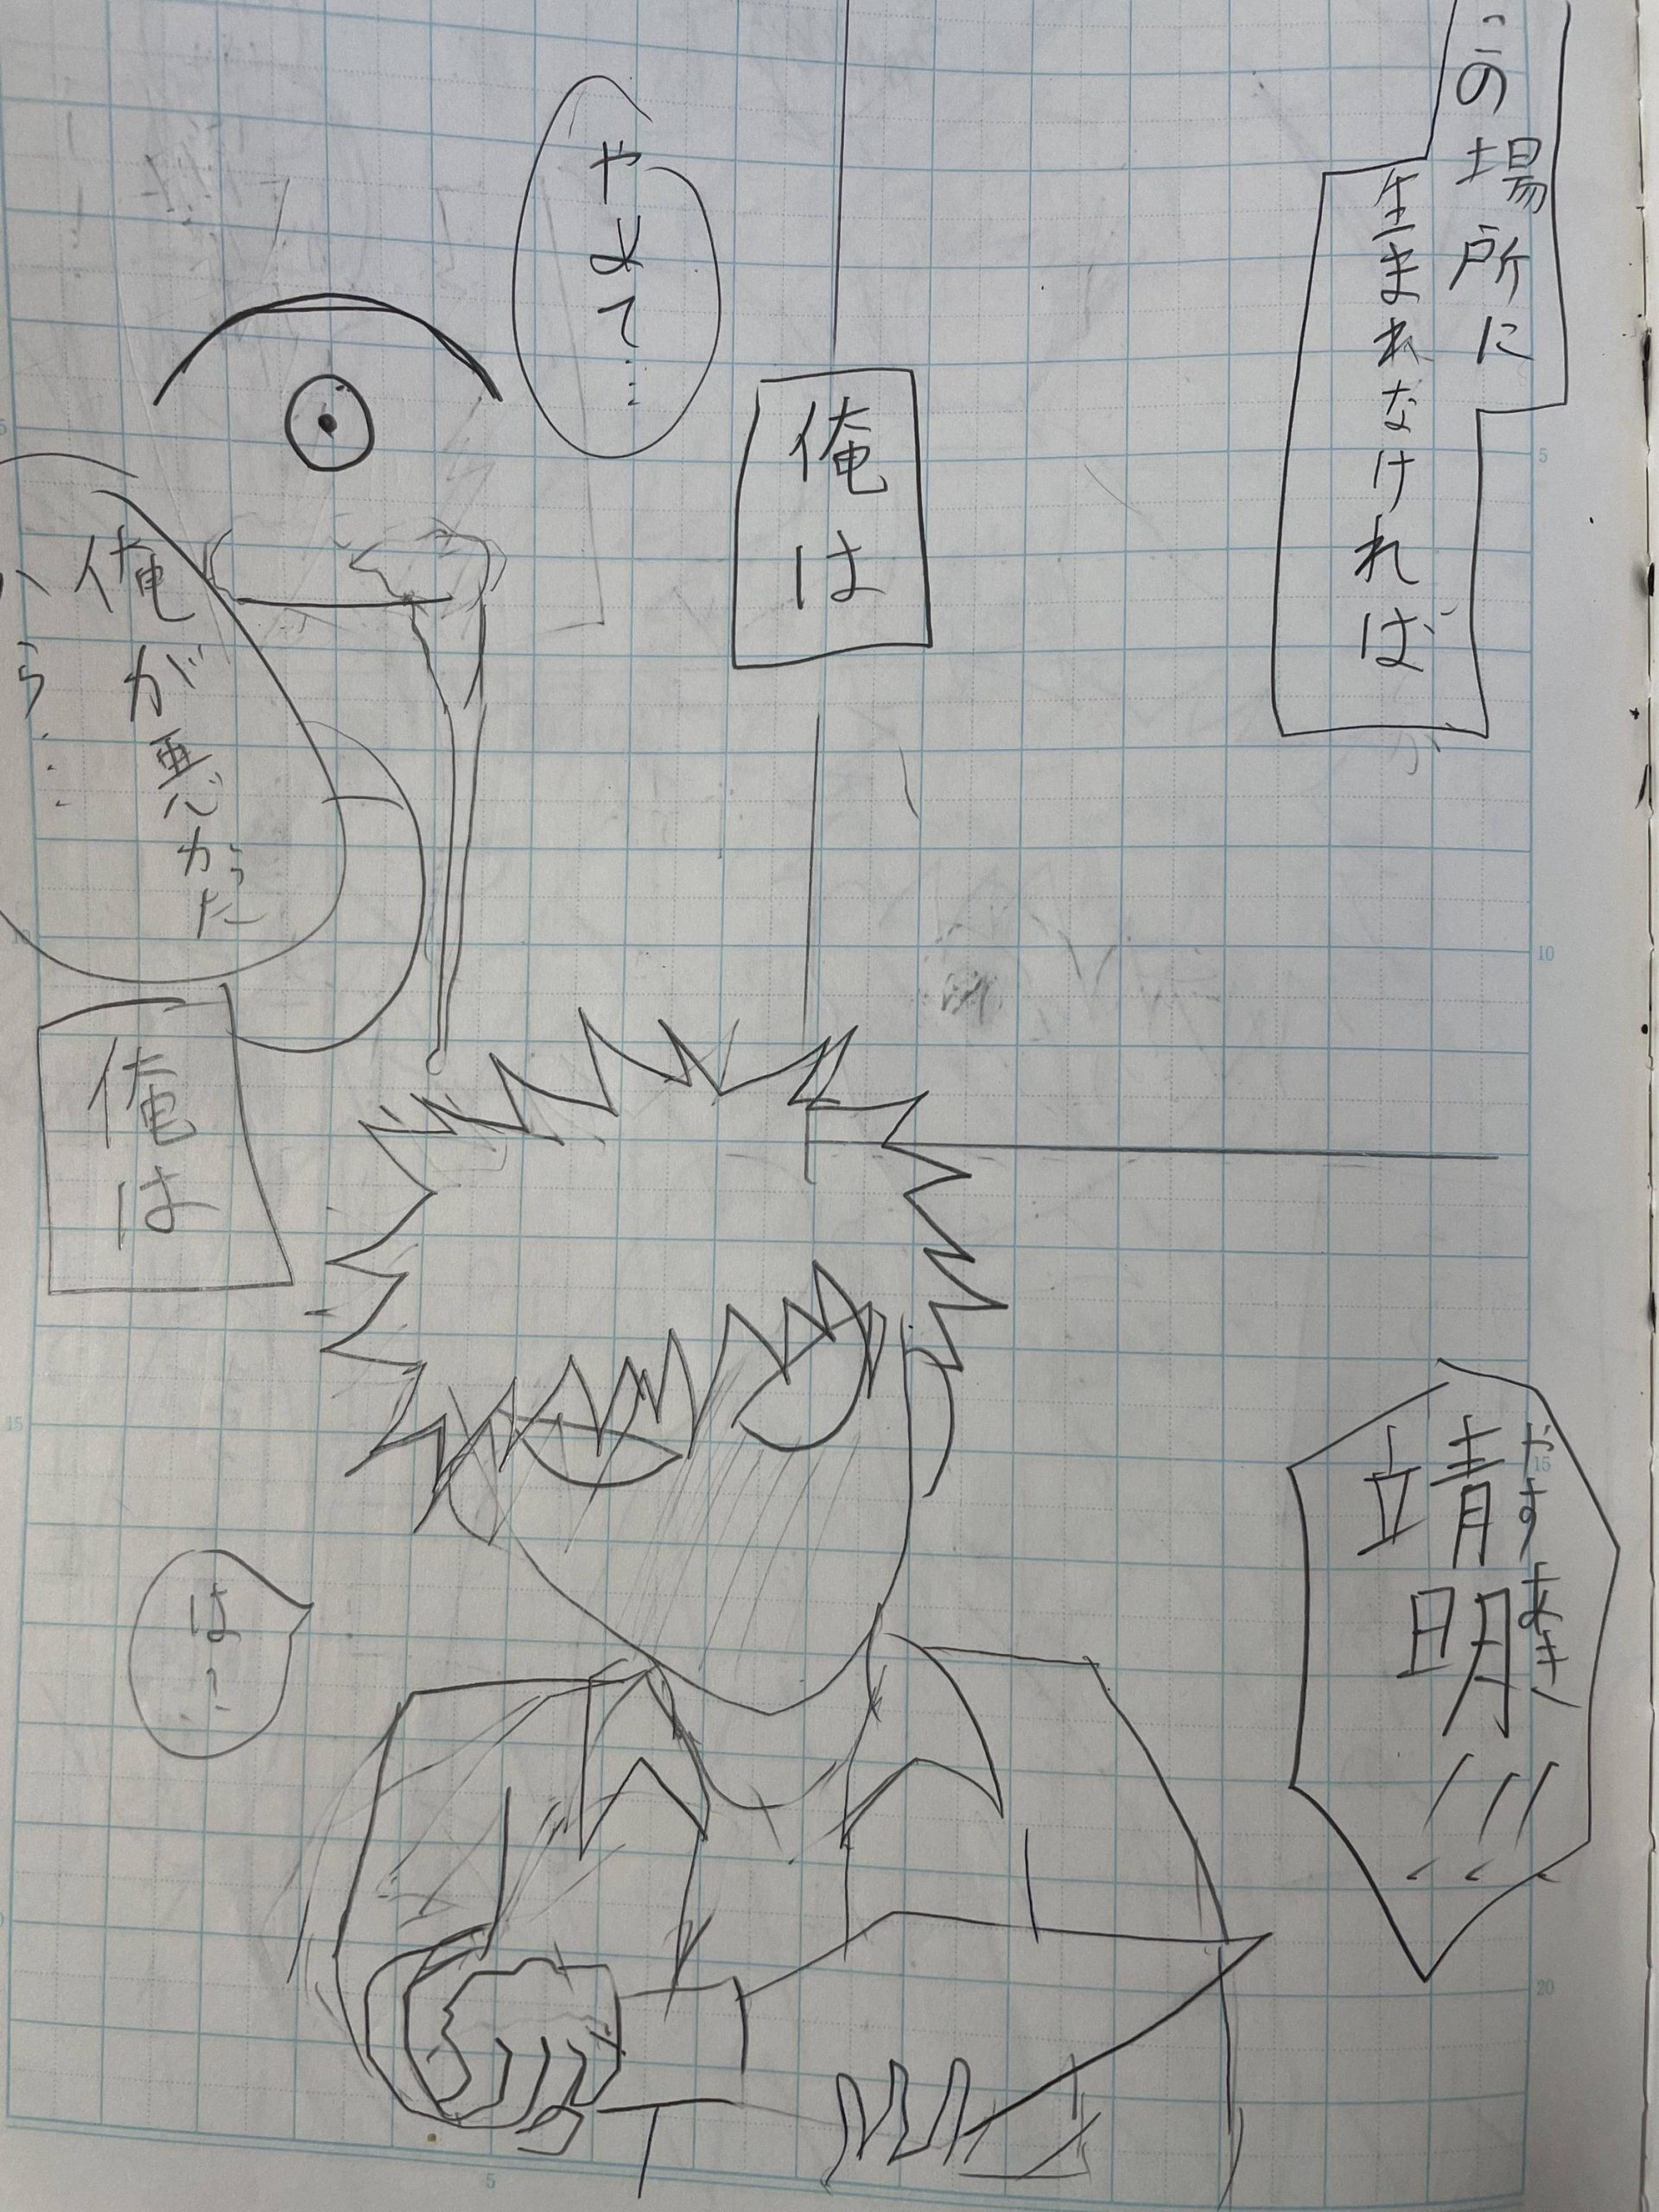 この場所に
生まれなければ
俺は
やめて…
俺が悪かった
から…
俺は
やすあき
靖明!!!
は…